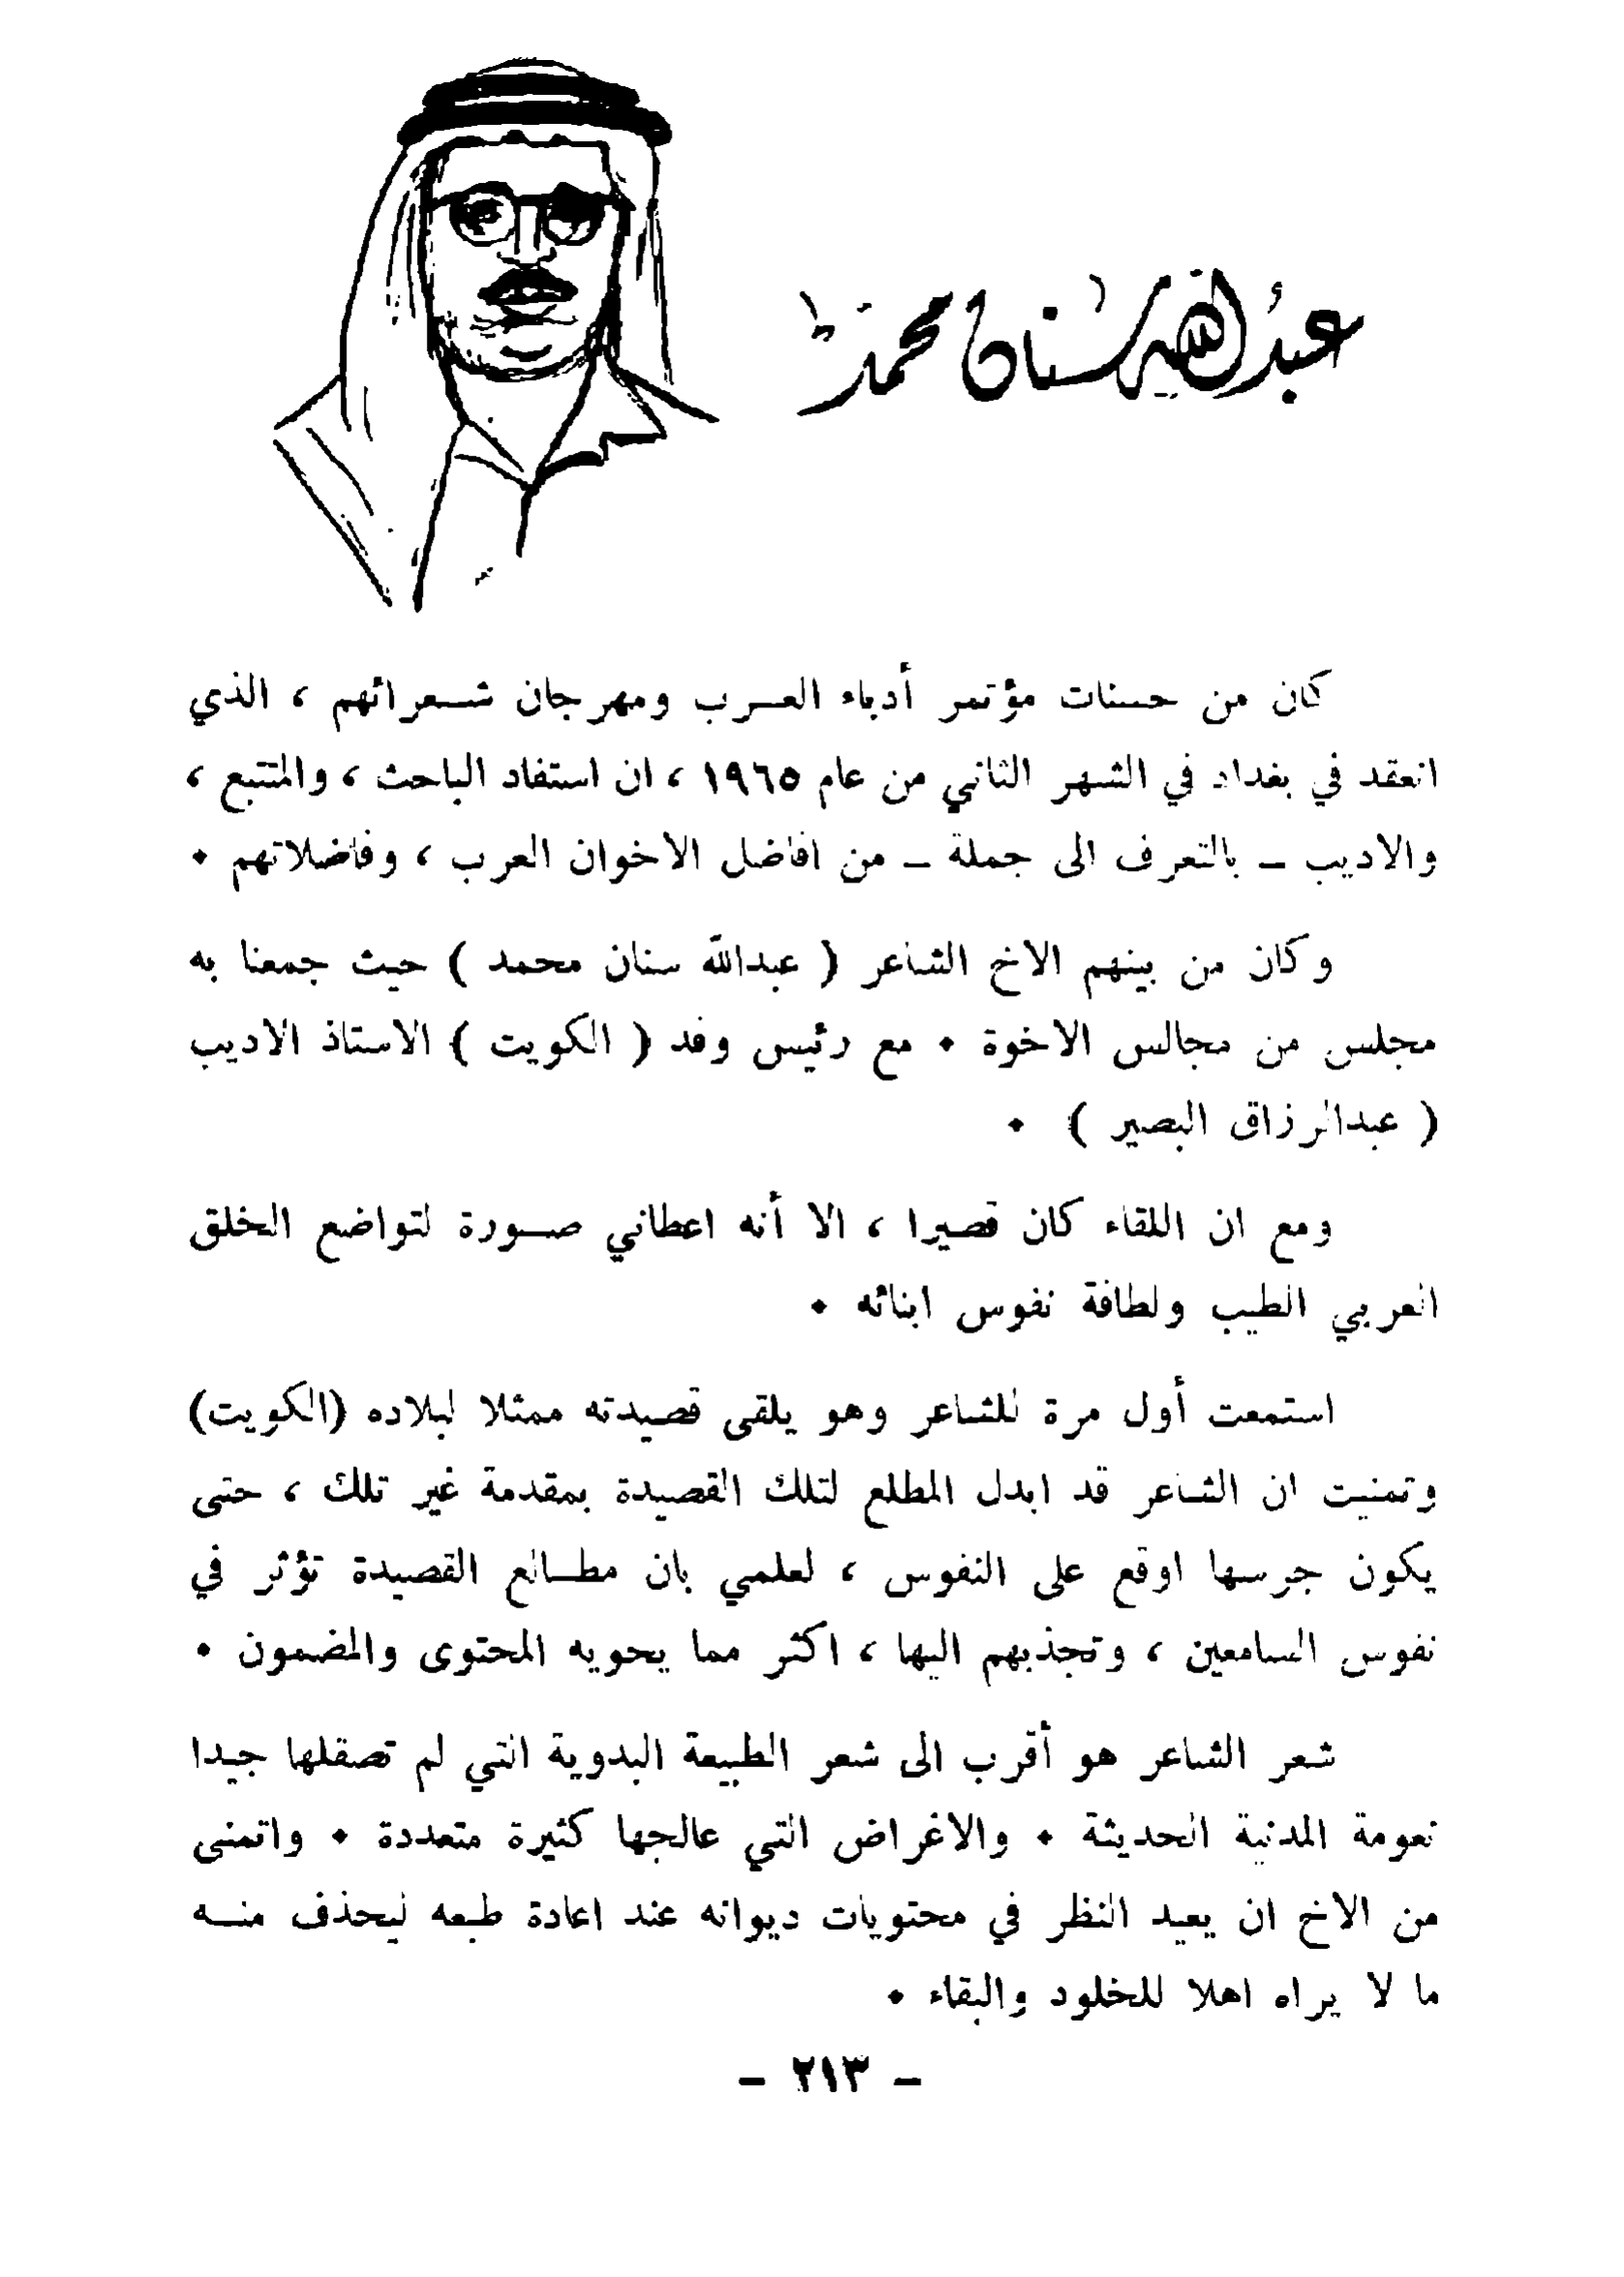 عبد الله سنان محمد
كان من حسنات مؤتمر أدباء العـرب ومهرجان شـعرائهم ، الذي
انعقد في بغداد في الشهر الثاني من عام ١٩٦٥ ، ان استفاد الباحث ، والمتتبع ،
والاديب – بالتعرف الى جملة – من افاضل الاخوان العرب ، وفاضلاتهم ٠
وكان من بينهم الاخ الشاعر ( عبدالله سنان محمد ) حيث جمعنا به
مجلس من مجالس الاخوة ٠ مع رئيس وفد ( الكويت ) الاستاذ الاديب
( عبدالرزاق البصير ) ٠
ومع ان اللقاء كان قصيرا ، الا أنه اعطاني صـورة لتواضع الخلق
العربي الطيب ولطافة نفوس ابنائه ٠
استمعت أول مرة للشاعر وهو يلقى قصيدته ممثلا لبلاده (الكويت)
وتمنيت ان الشاعر قد ابدل المطلع لتلك القصيدة بمقدمة غير تلك ، حتى
يكون جرسها اوقع على النفوس ، لعلمي بان مطـالع القصيدة تؤثر في
نفوس السامعين ، وتجذبهم اليها ، اكثر مما يحويه المحتوى والمضمون ٠
شعر الشاعر هو أقرب الى شعر الطبيعة البدوية التي لم تصقلها جيدا
نعومة المدنية الحديثة ٠ والاغراض التي عالجها كثيرة متعددة ٠ واتمنى
من الاخ ان يعيد النظر في محتويات ديوانه عند اعادة طبعه ليحذف منـه
ما لا يراه اهلا للخلود والبقاء ٠
– ٢١٣ –